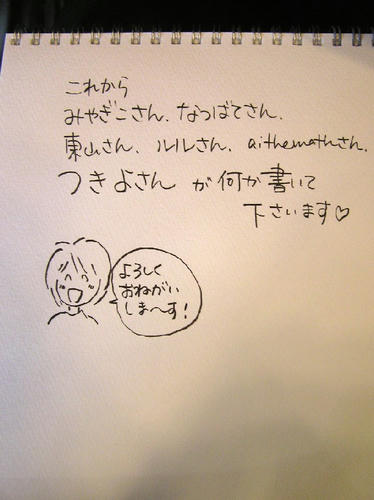 これから
みやぎこさん、なつばてさん、
東山さん、ルルさん、aithemathさん、
つきよさん が 何か書いて
下さいます♡
よろしく
おねがい
しま〜す!